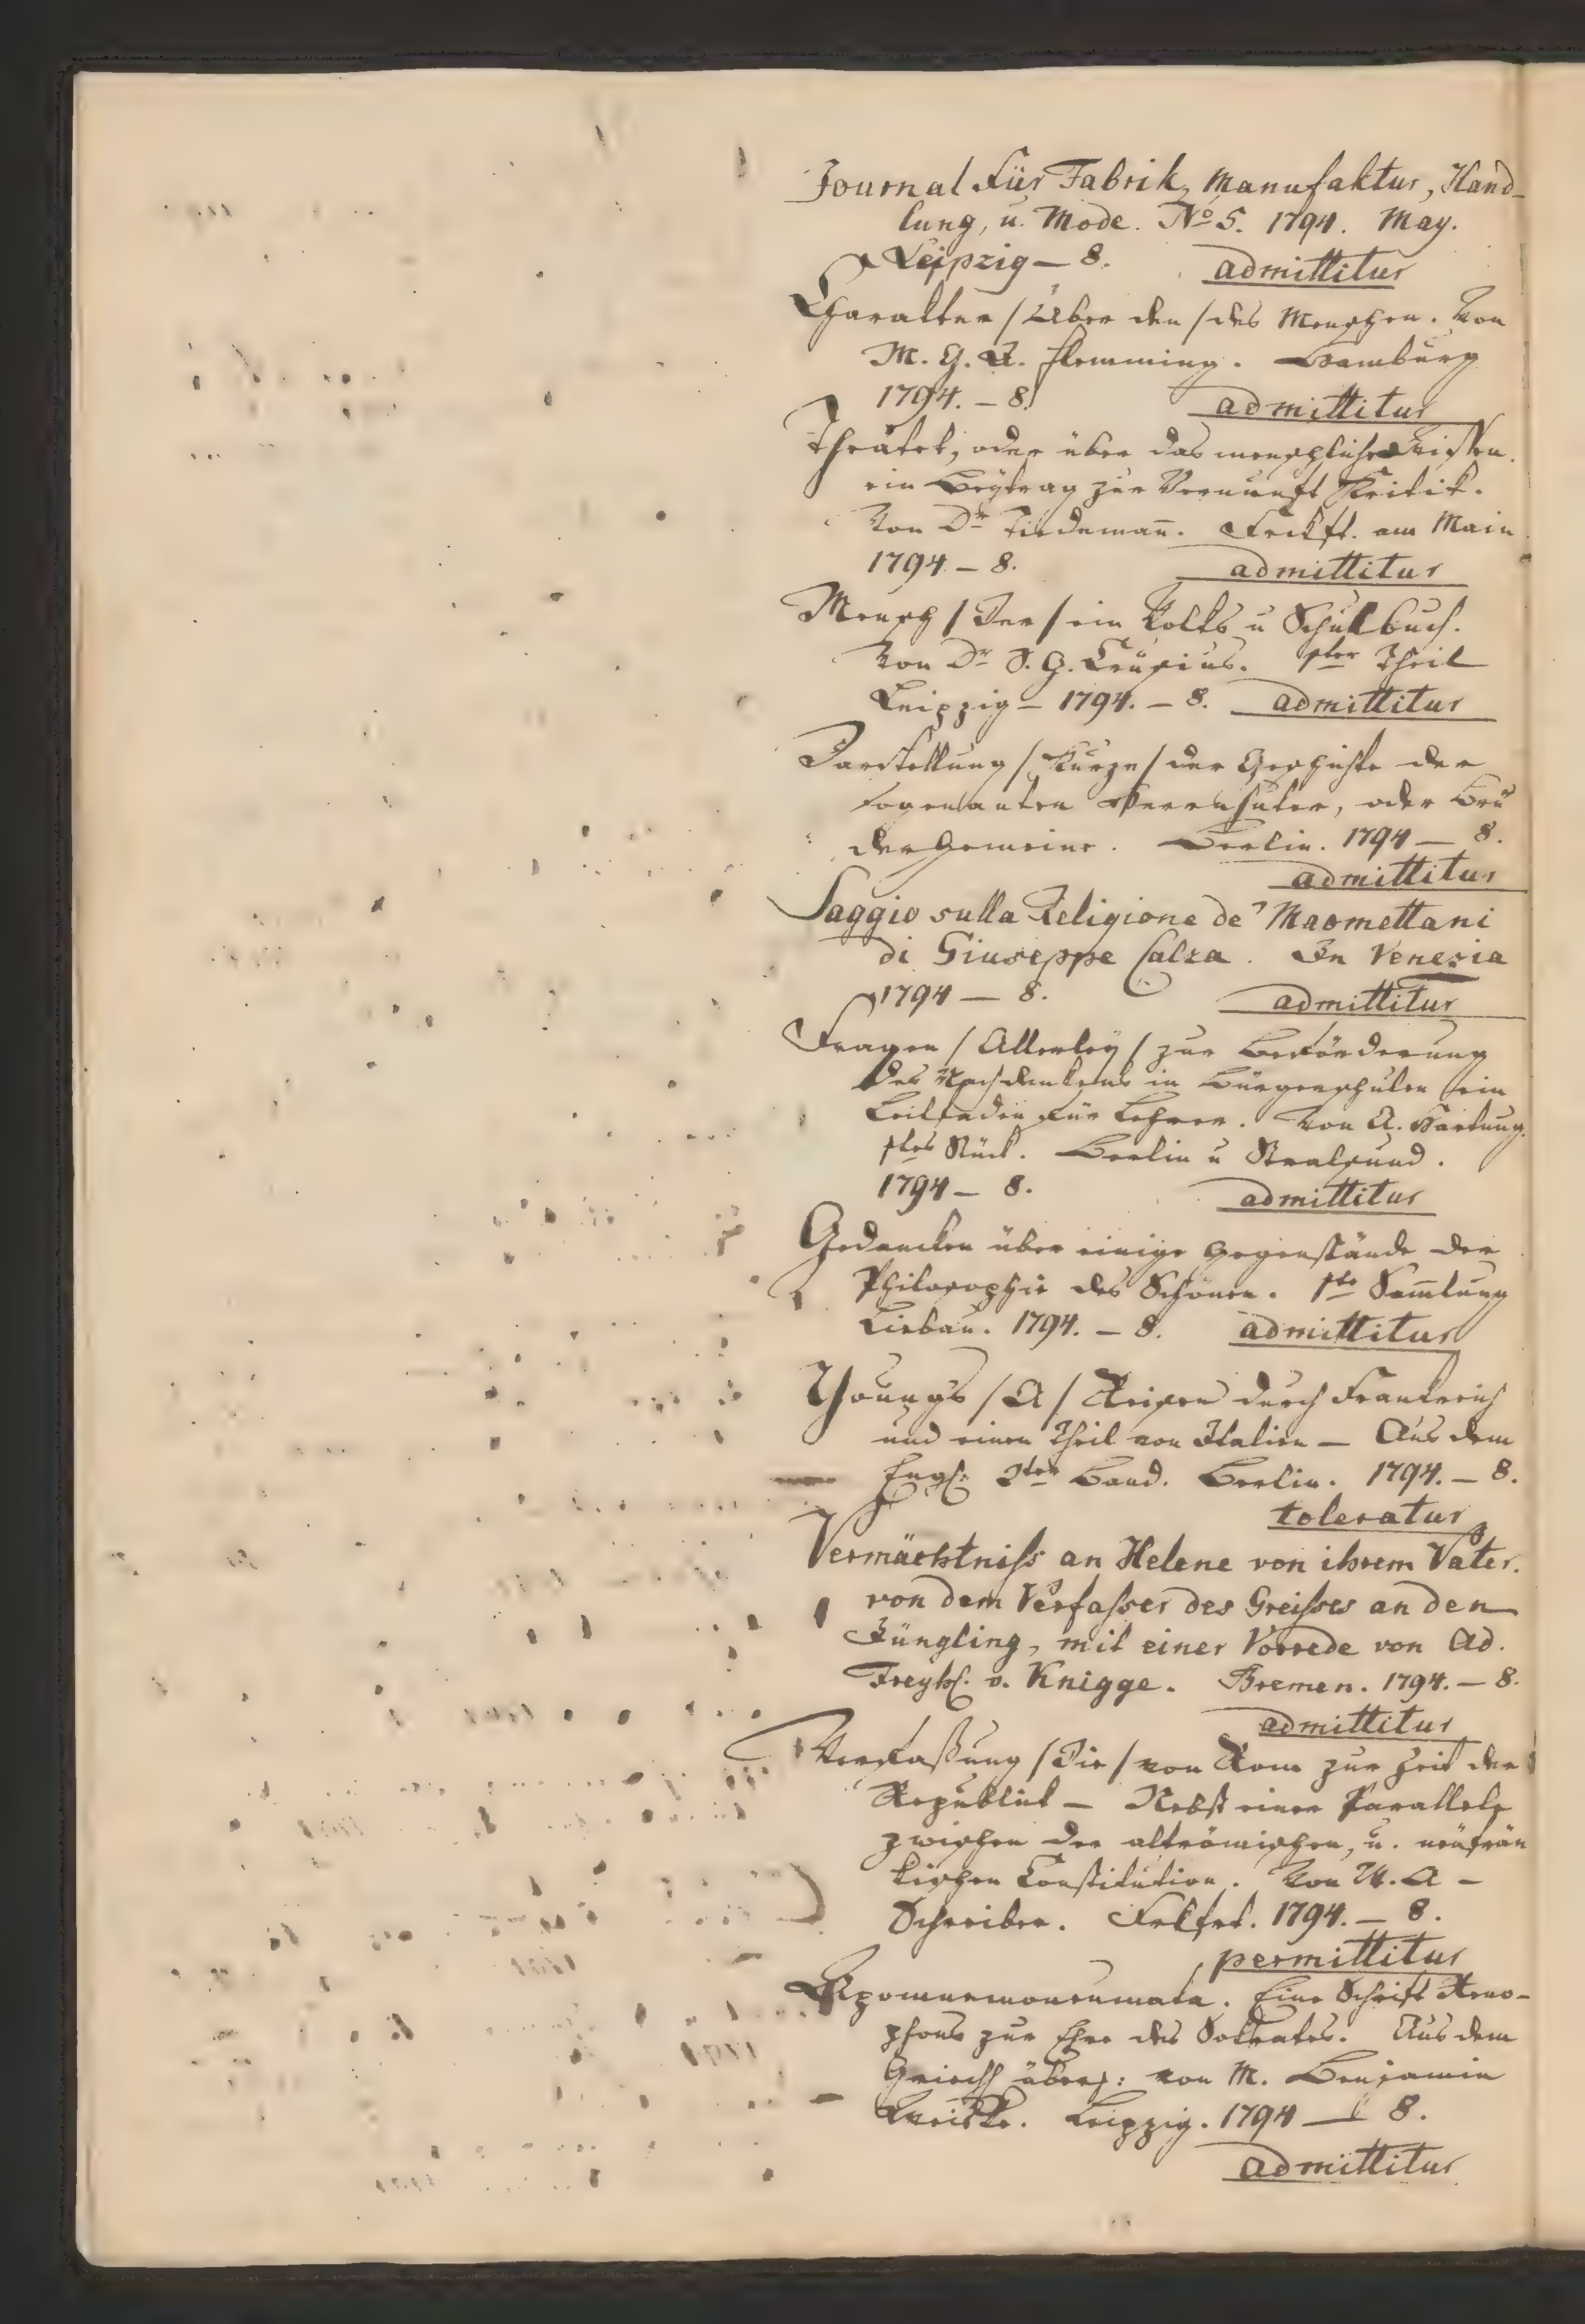 Journal für Fabrik, Manufaktur, Hand-
lung, u. Mode. No 5. 1794. May.
Leipzig — 8. admittitur
Charakter / Über den / des Menschen. Von
M. G. F. Flemming. Hamburg
1794. — 8. admittitur
Theätet, oder über das menschliche Wissen.
ein Beytrag zur Vernunft Kritik.
Von Dr Tiedemañ. Frckft. am Main
1794 — 8. admittitur
Mensch / Der / ein Volks u Schulbuch.
Von Dr S. G. Crusius. 1ster Theil
Leipzig — 1794. — 8. admittitur
Darstellung / Kurze / der Geschichte der
sogenanten Herrenhuter, oder Brü
dergemeine. Berlin. 1794 — 8.
admittitur
Saggio sulla Religione de' Maomettani
di Giuseppe Calza. In Venezia
1794 — 8. admittitur
Fragen / Allerley / zur Beförderung
des Nachdenkens in Bürgerschulen ein
Leitfaden für Lehrer. Von A. Hartung.
1stes Stück. Berlin u Stralsund.
1794 — 8. admittitur
Gedancken über einige Gegenstände der
Philosophie des Schönen. 1ste Sam̄lung
Liebau. 1794. — 8. admittitur
Young's / A / Reisen durch Frankreich
und einen Theil von Italien — Aus dem
Engl: 2ter Band. Berlin. 1794. — 8.
toleratur
Vermächtniss an Helene von ihrem Vater.
von dem Verfasser des Greisses an den
Jüngling, mit einer Vorrede von Ad.
Freyh. v. Knigge. Bremen. 1794. — 8.
admittitur
Verfaßung / Die / von Rom zur Zeit der
Republik — Nebst einer Parallele
zwischen der altrömischen, u. neüfrän
kischen Constitution. Von A. W. —
Schreiber. Frkfrt. 1794. — 8.
permittitur
Apomnemoneumata. Eine Schrift Xeno-
phons zur Ehre des Sokrates. Aus dem
Griech übers: von M. Benjamin
Weiske. Leipzig. 1794 — 8.
admittitur